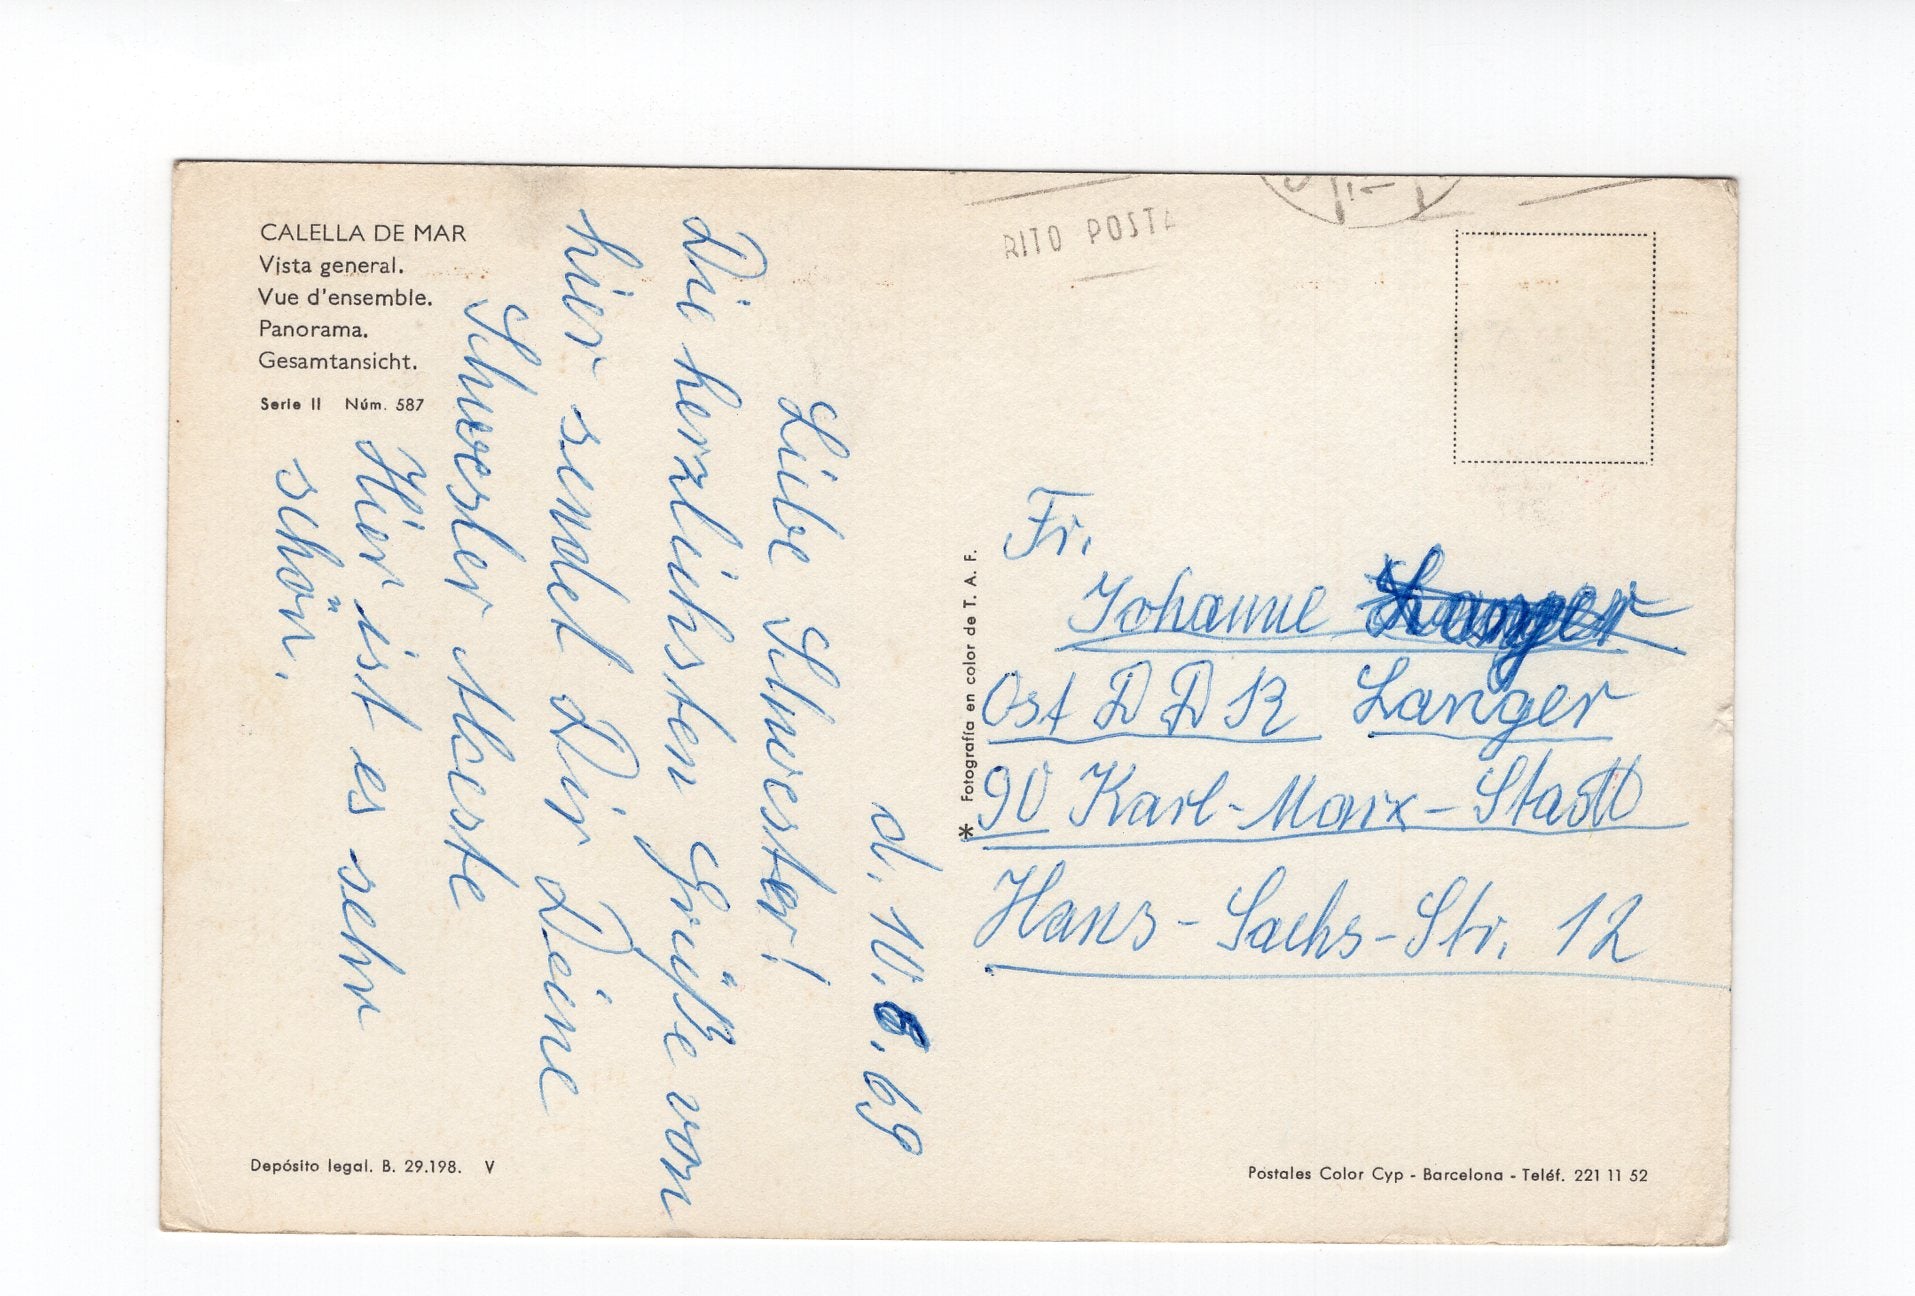 CALELLA DE MAR
Vista general.
Vue d'ensemble.
Panorama.
Gesamtansicht.
Serie II Núm. 587
d. 10. 6. 69
Liebe Schwester!
Die herzlichsten Grüße von
hier sendet Dir Deine
Schwester Alceste
Hier ist es sehr
schön.
Depósito legal. B. 29.198. V
* Fotografía en color de T. A. F.
RITO POSTA
Fr.
Johanne Langer
Ost DDR Langer
90 Karl-Marx-Stadt
Hans-Sachs-Str. 12
Postales Color Cyp - Barcelona - Teléf. 221 11 52